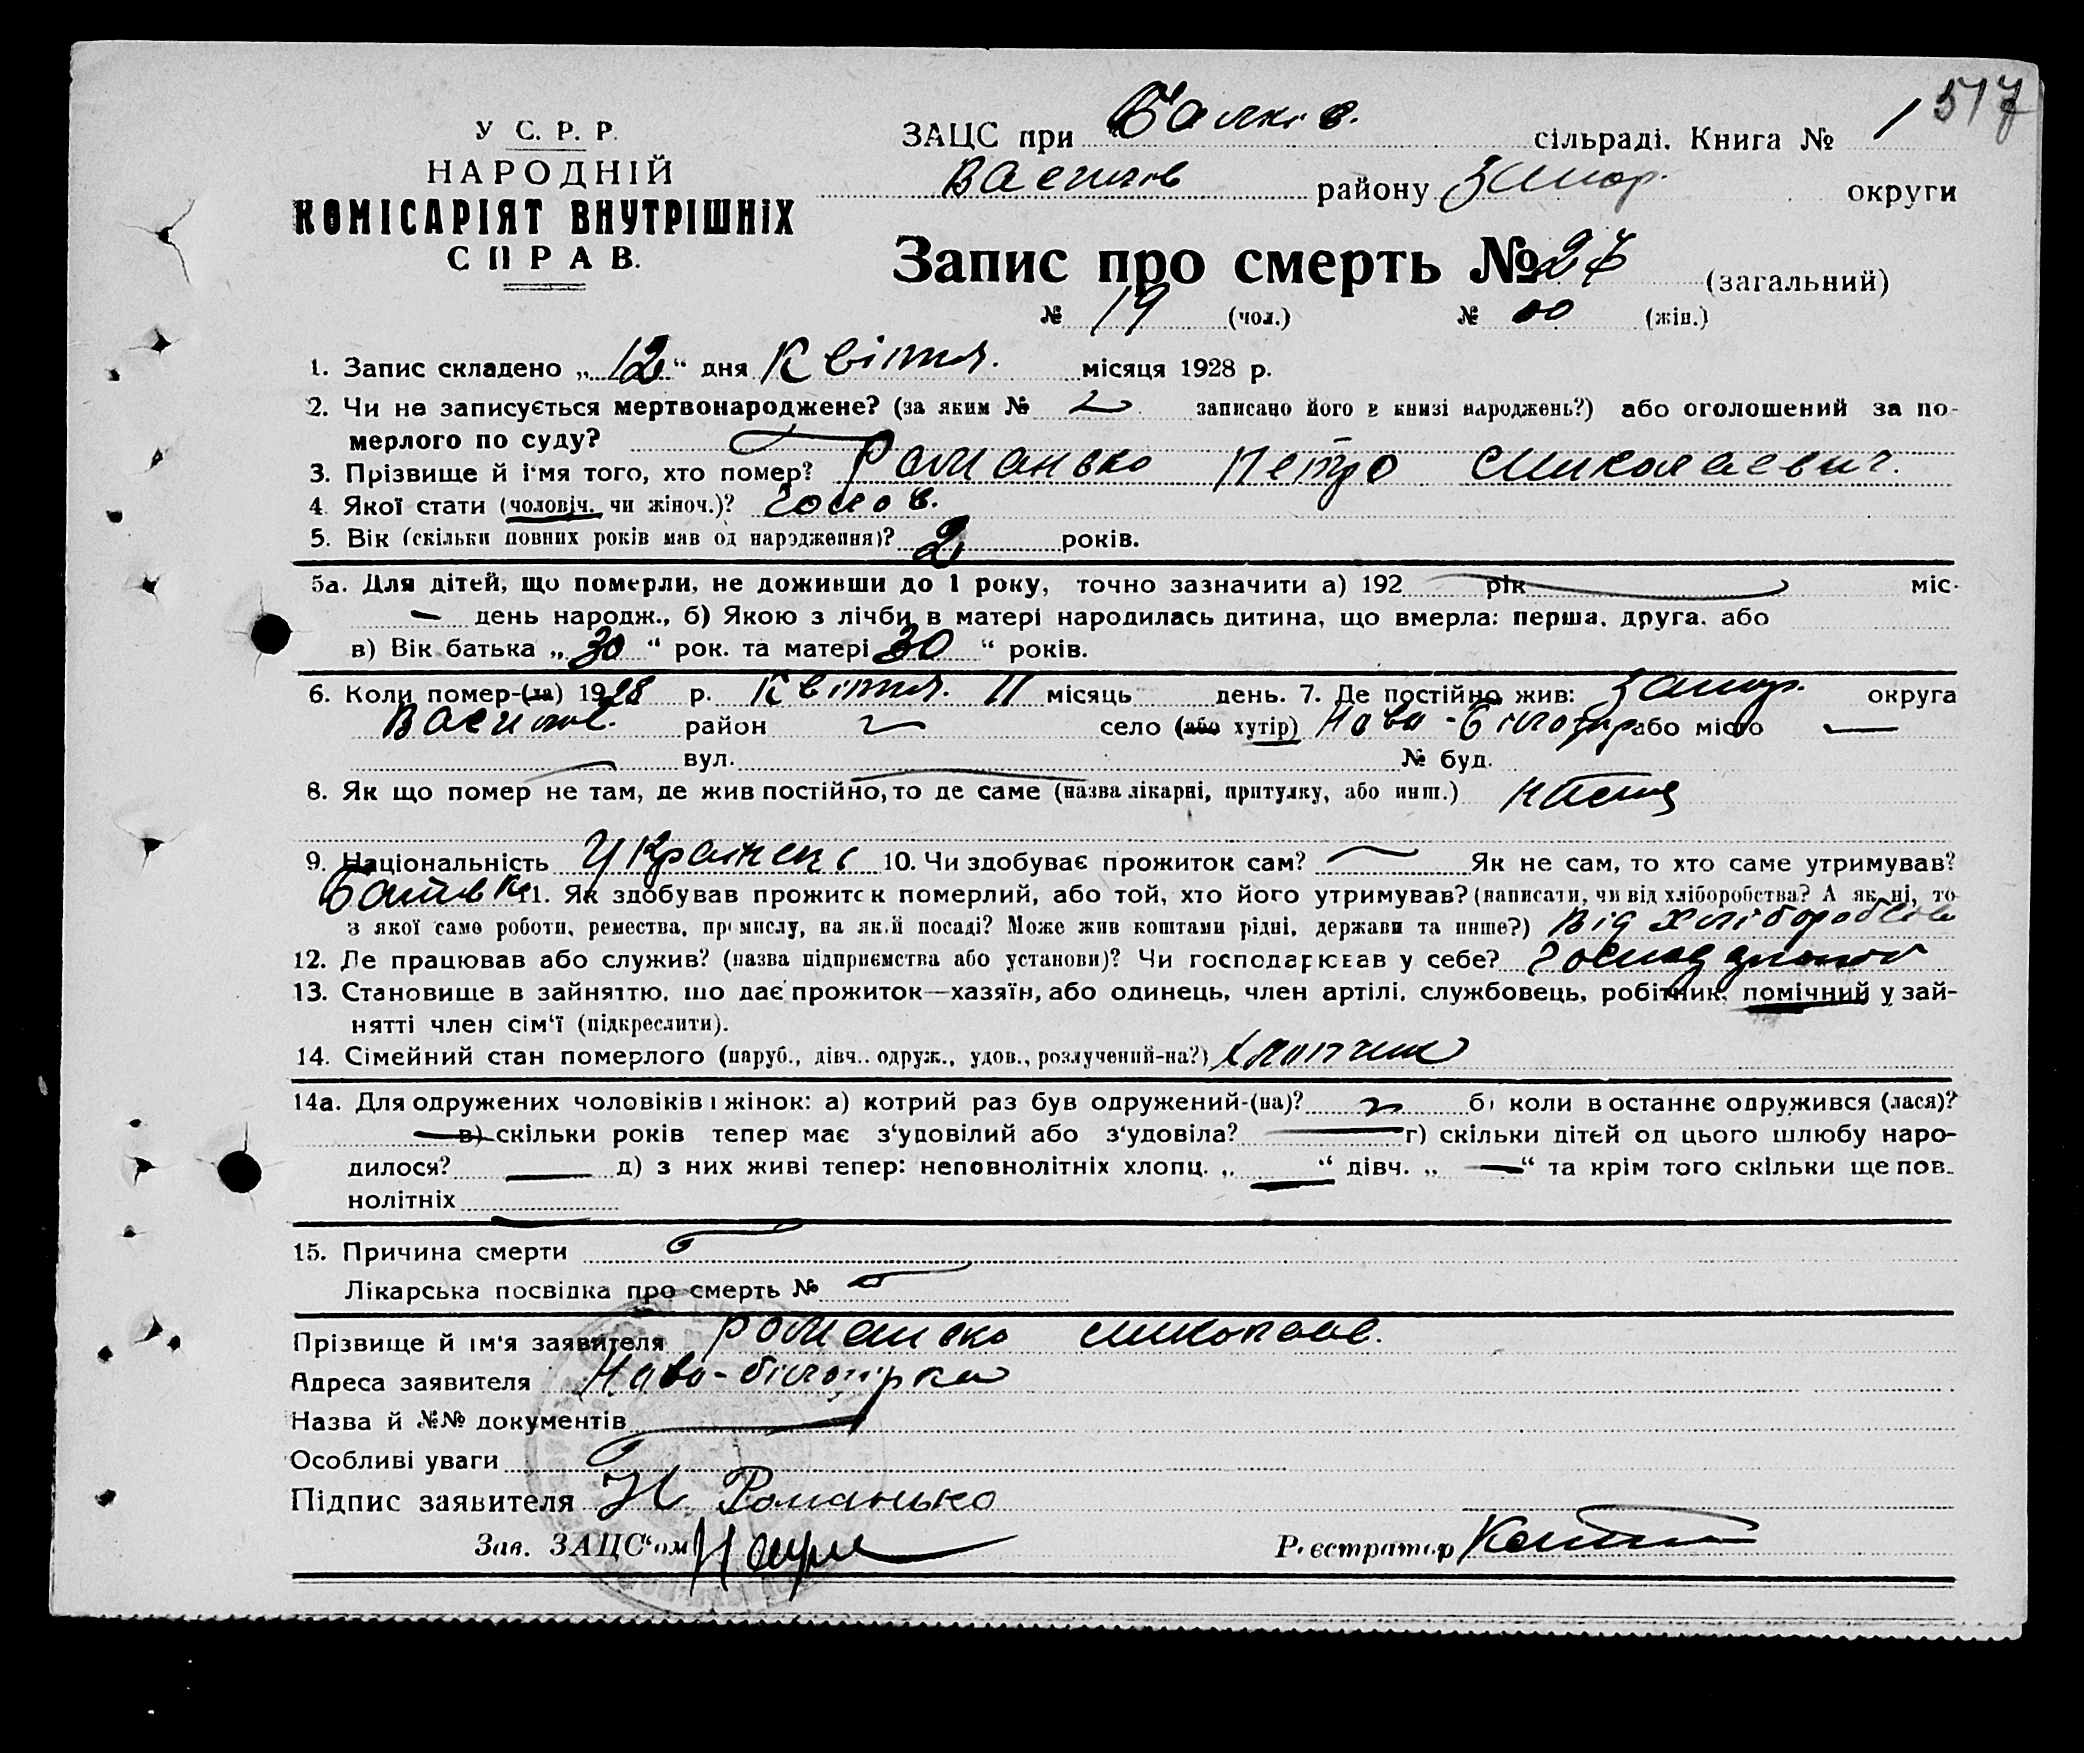 517
У С. Р. Р.
НАРОДНІЙ
КОМІСАРІЯТ ВНУТРІШНІХ
СПРАВ.
ЗАЦС при Балків. сільраді. Книга № 1
Василів району Запор. округи
Запис про смерть № 27 (загальний)
№ 19 (чол.) № (жін.)
1. Запис складено „12“ дня Квітня. місяця 1928 р.
2. Чи не записується мертвонароджене? (за яким № записано його в книзі народжень?) або оголошений за по-
мерлого по суду?
3. Прізвище й і'мя того, хто помер? Романько Петро Миколаевич.
4. Якої стати (чоловіч. чи жіноч.)? Чолов.
5. Вік (скільки повних років мав од народження)? 2 років.
5а. Для дітей, що померли, не доживши до 1 року, точно зазначити а) 192 рік міс.
день народж., б) Якою з лічби в матері народилась дитина, що вмерла: перша, друга, або
в) Вік батька „30“ рок. та матері 30“ років.
6. Коли помер-(ла) 1928 р. Квітня. 11 місяць день. 7. Де постійно жив: Запор. округа
Василів. район село (або хутір) Ново-Білогірка або місто
вул. № буд.
8. Як що помер не там, де жив постійно, то де саме (назва лікарні, притулку, або инш.)
9. Національність Украінець 10. Чи здобуває прожиток сам? Як не сам, то хто саме утримував?
Батько 11. Як здобував прожиток померлий, або той, хто його утримував? (написати, чи від хліборобства? А як ні, то
з якої саме роботи, ремества, промислу, на якій посаді? Може жив коштами рідні, держави та инше?) Від хліборобства
12. Де працював або служив? (назва підприємства або установи)? Чи господарював у себе?
13. Становище в зайняттю, що дає прожиток—хазяїн, або одинець, член артілі, службовець, робітник, помічний у зай-
нятті член сім'ї (підкреслити).
14. Сімейний стан померлого (паруб., дівч.. одруж., удов., розлучений-на?) хлопчик
14а. Для одружених чоловіків і жінок: а) котрий раз був одружений-(на)? б) коли в останнє одружився (лася)?
в) скільки років тепер має з'удовілий або з'удовіла? г) скільки дітей од цього шлюбу наро-
дилося? д) з них живі тепер: неповнолітніх хлопц. „ “ дівч. „ “ та крім того скільки ще пов-
нолітніх
15. Причина смерти
Лікарська посвідка про смерть №
Прізвище й ім'я заявителя Романько Миколай.
Адреса заявителя Ново-білогірка
Назва й №№ документів
Особливі уваги
Підпис заявителя Н. Романько
Зав. ЗАЦС'ом Реєстратор